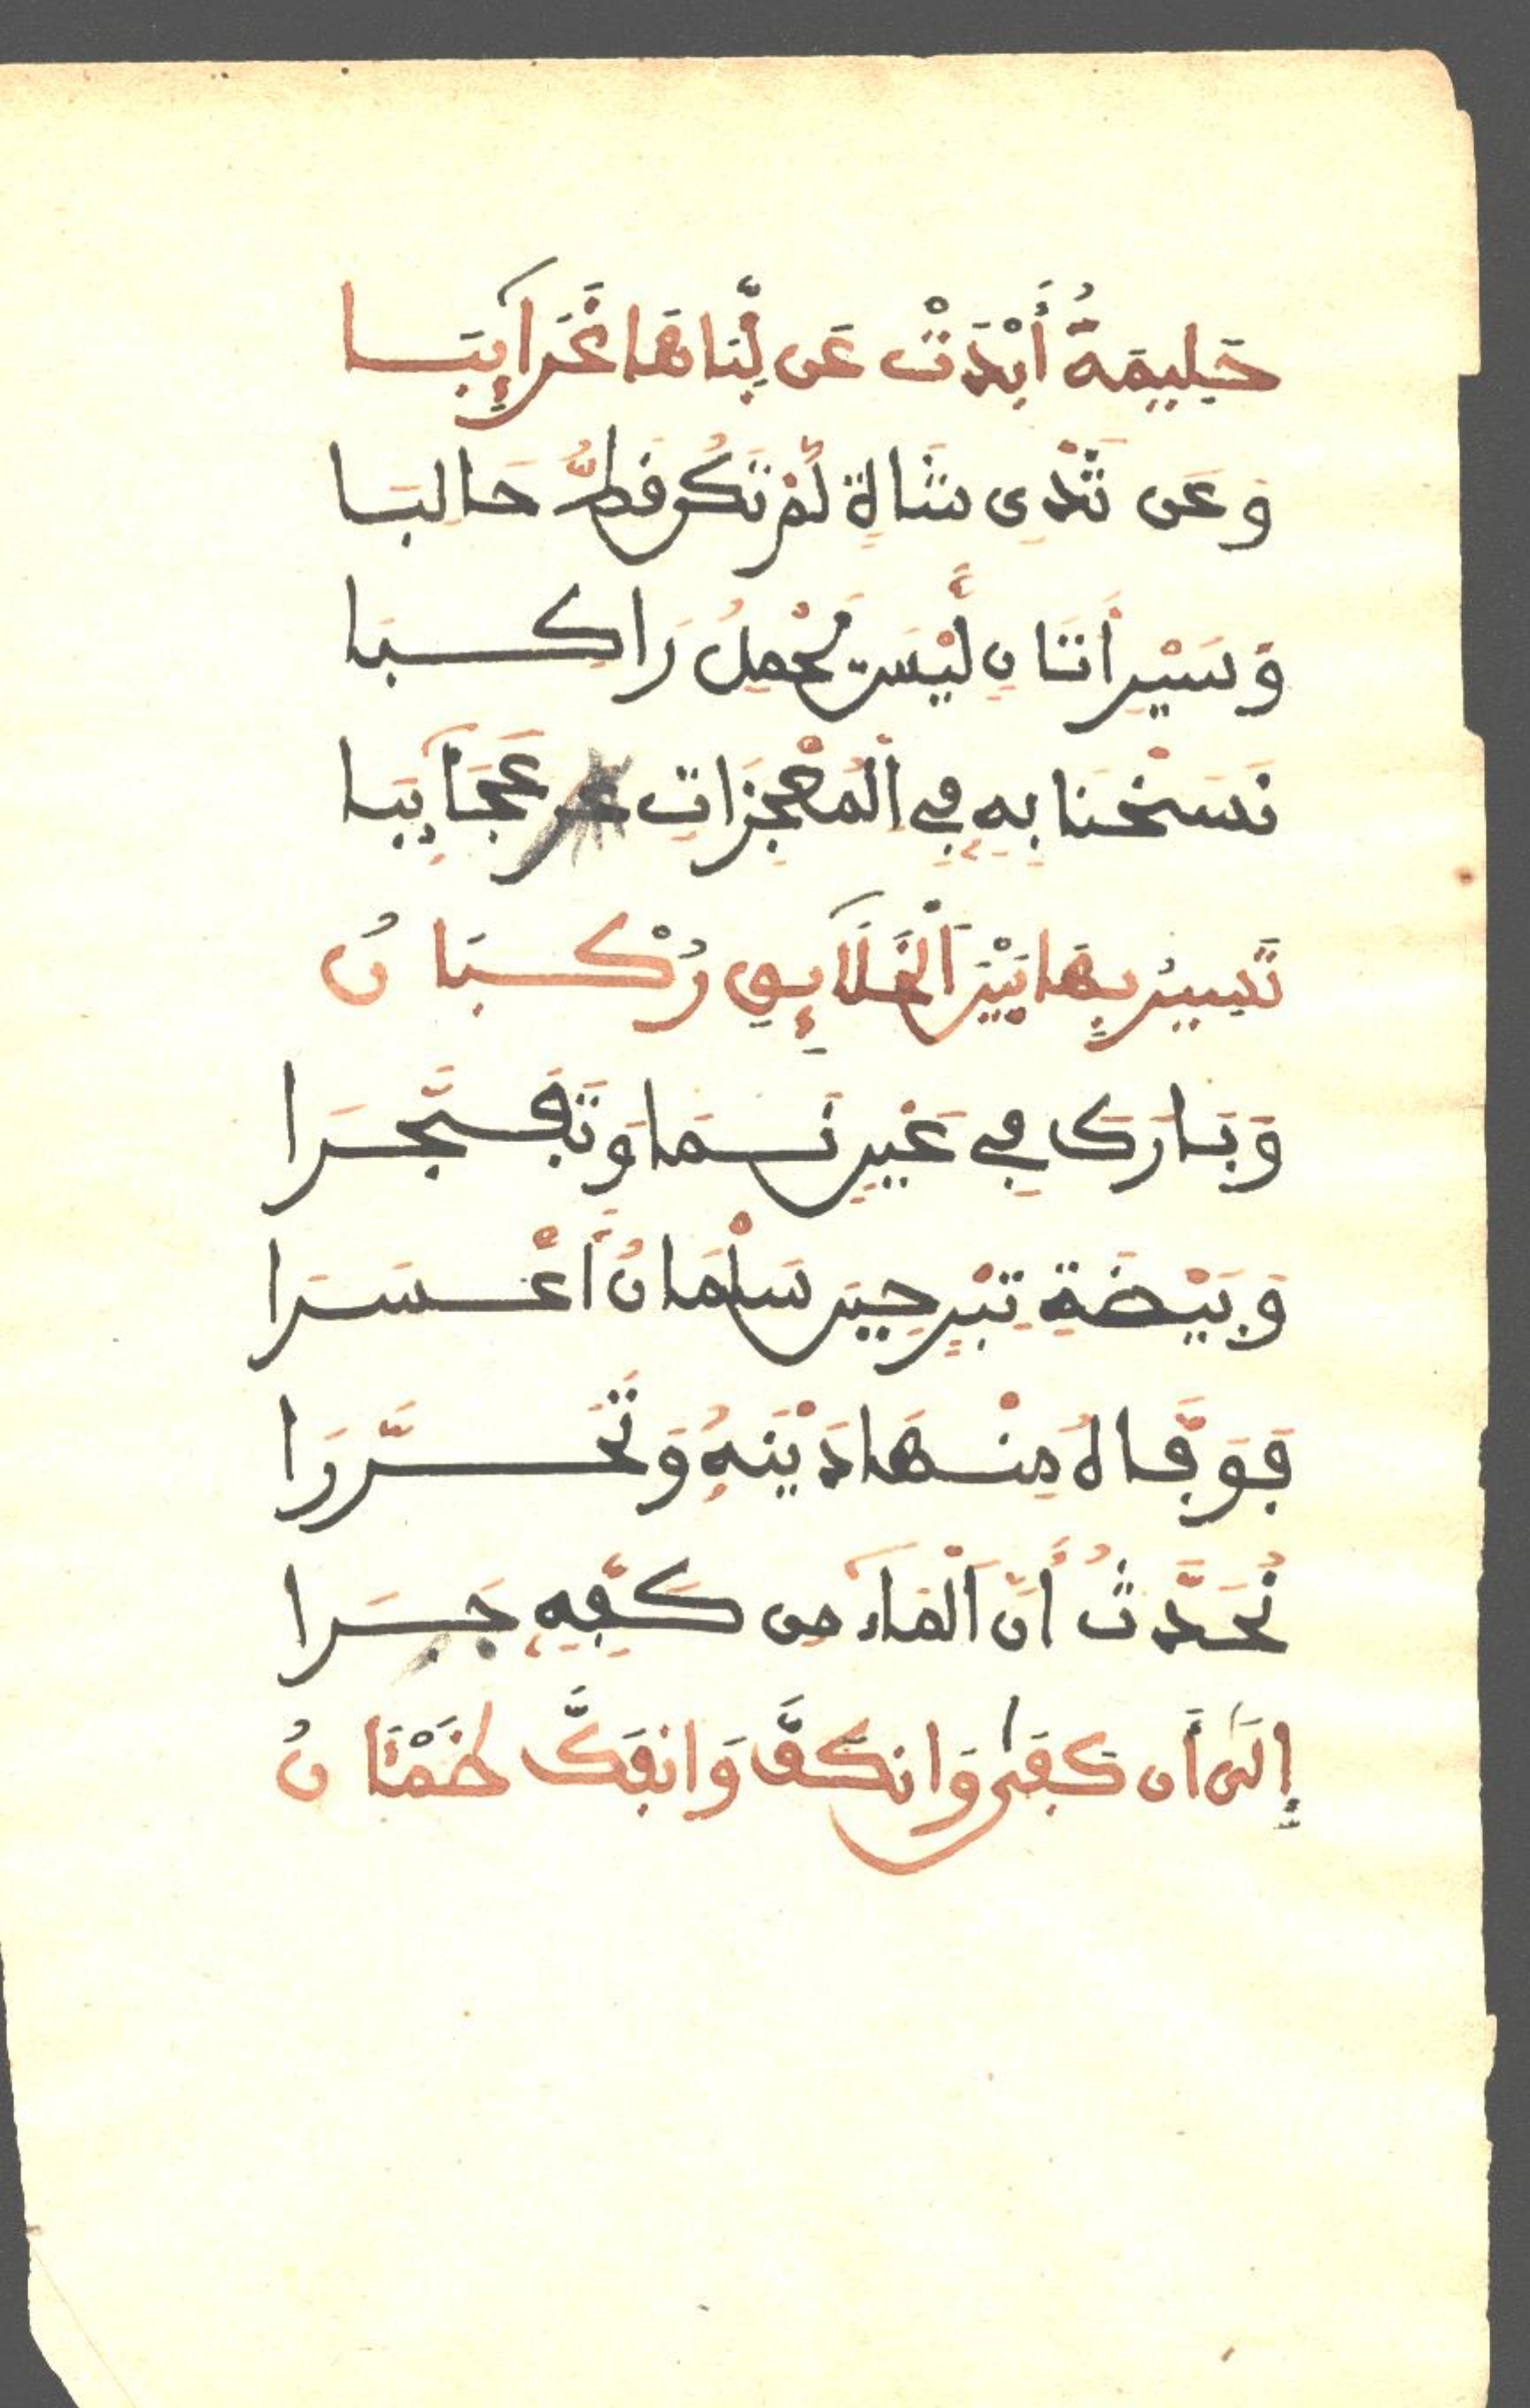 حَلِيمَةُ أَبْدَتْ عَن لِّبَنَاهَا غَرَآئِبَا
وَعَن ثَدْيِ شَاةٍ لَمْ تَكُن قَطُّ حَالِبَا
وَسَيْرِ أَتَانٍ لَيْسَ تَحْمِلُ رَاكِبَا
نَسَخْنَا بِهِ فِي الْمُعْجِزَاتِ عَن عَجَآئِبَا
تَسِيرُ بِهَا بَيْنَ الْخَلَآئِقِ رُكْبَانُ
وَبَارَكَ فِي غَيْرِ نَمَا وَتَفَجَّرَا
وَبَيْضَةِ تِبْرٍ حِينَ سَلْمَانُ أَعْسَرَا
فَوَفَّا لَهُ مِنْهَا دَيْنَهُ وَتَحَرَّرَا
نُحَدِّثُ أَنَّ الْمَآءَ مِن كَفِّهِ جَرَا
إِلَى أَن كَفَى وَانكَفَّ وَانفَكَّ ظَمْئَانُ